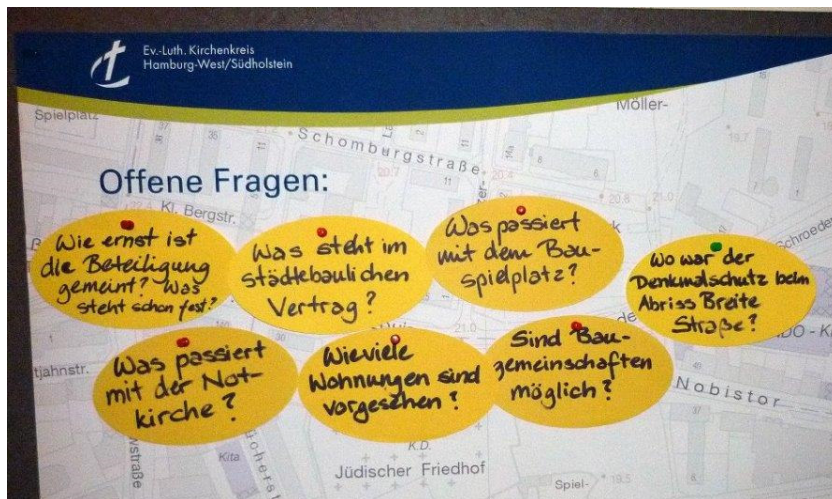 Ev.-Luth. Kirchenkreis
Hamburg-West/Südholstein
Spielplatz
Möller-
Schomburgstraße
Offene Fragen:
Kl. Bergstr.
Wie ernst ist
die Beteiligung
gemeint? Was
steht schon fest?
Was steht im
städtebaulichen
Vertrag?
Was passiert
mit dem Bau-
spielplatz?
Wo war der
Denkmalschutz beim
Abriss Breite
Straße?
Schroede
Was passiert
mit der Not-
kirche?
Wieviele
Wohnungen sind
vorgesehen?
Sind Bau-
gemeinschaften
möglich?
tjahnstr.
Nobistor
Kita
K.D.
Jüdischer Friedhof
Spiel-